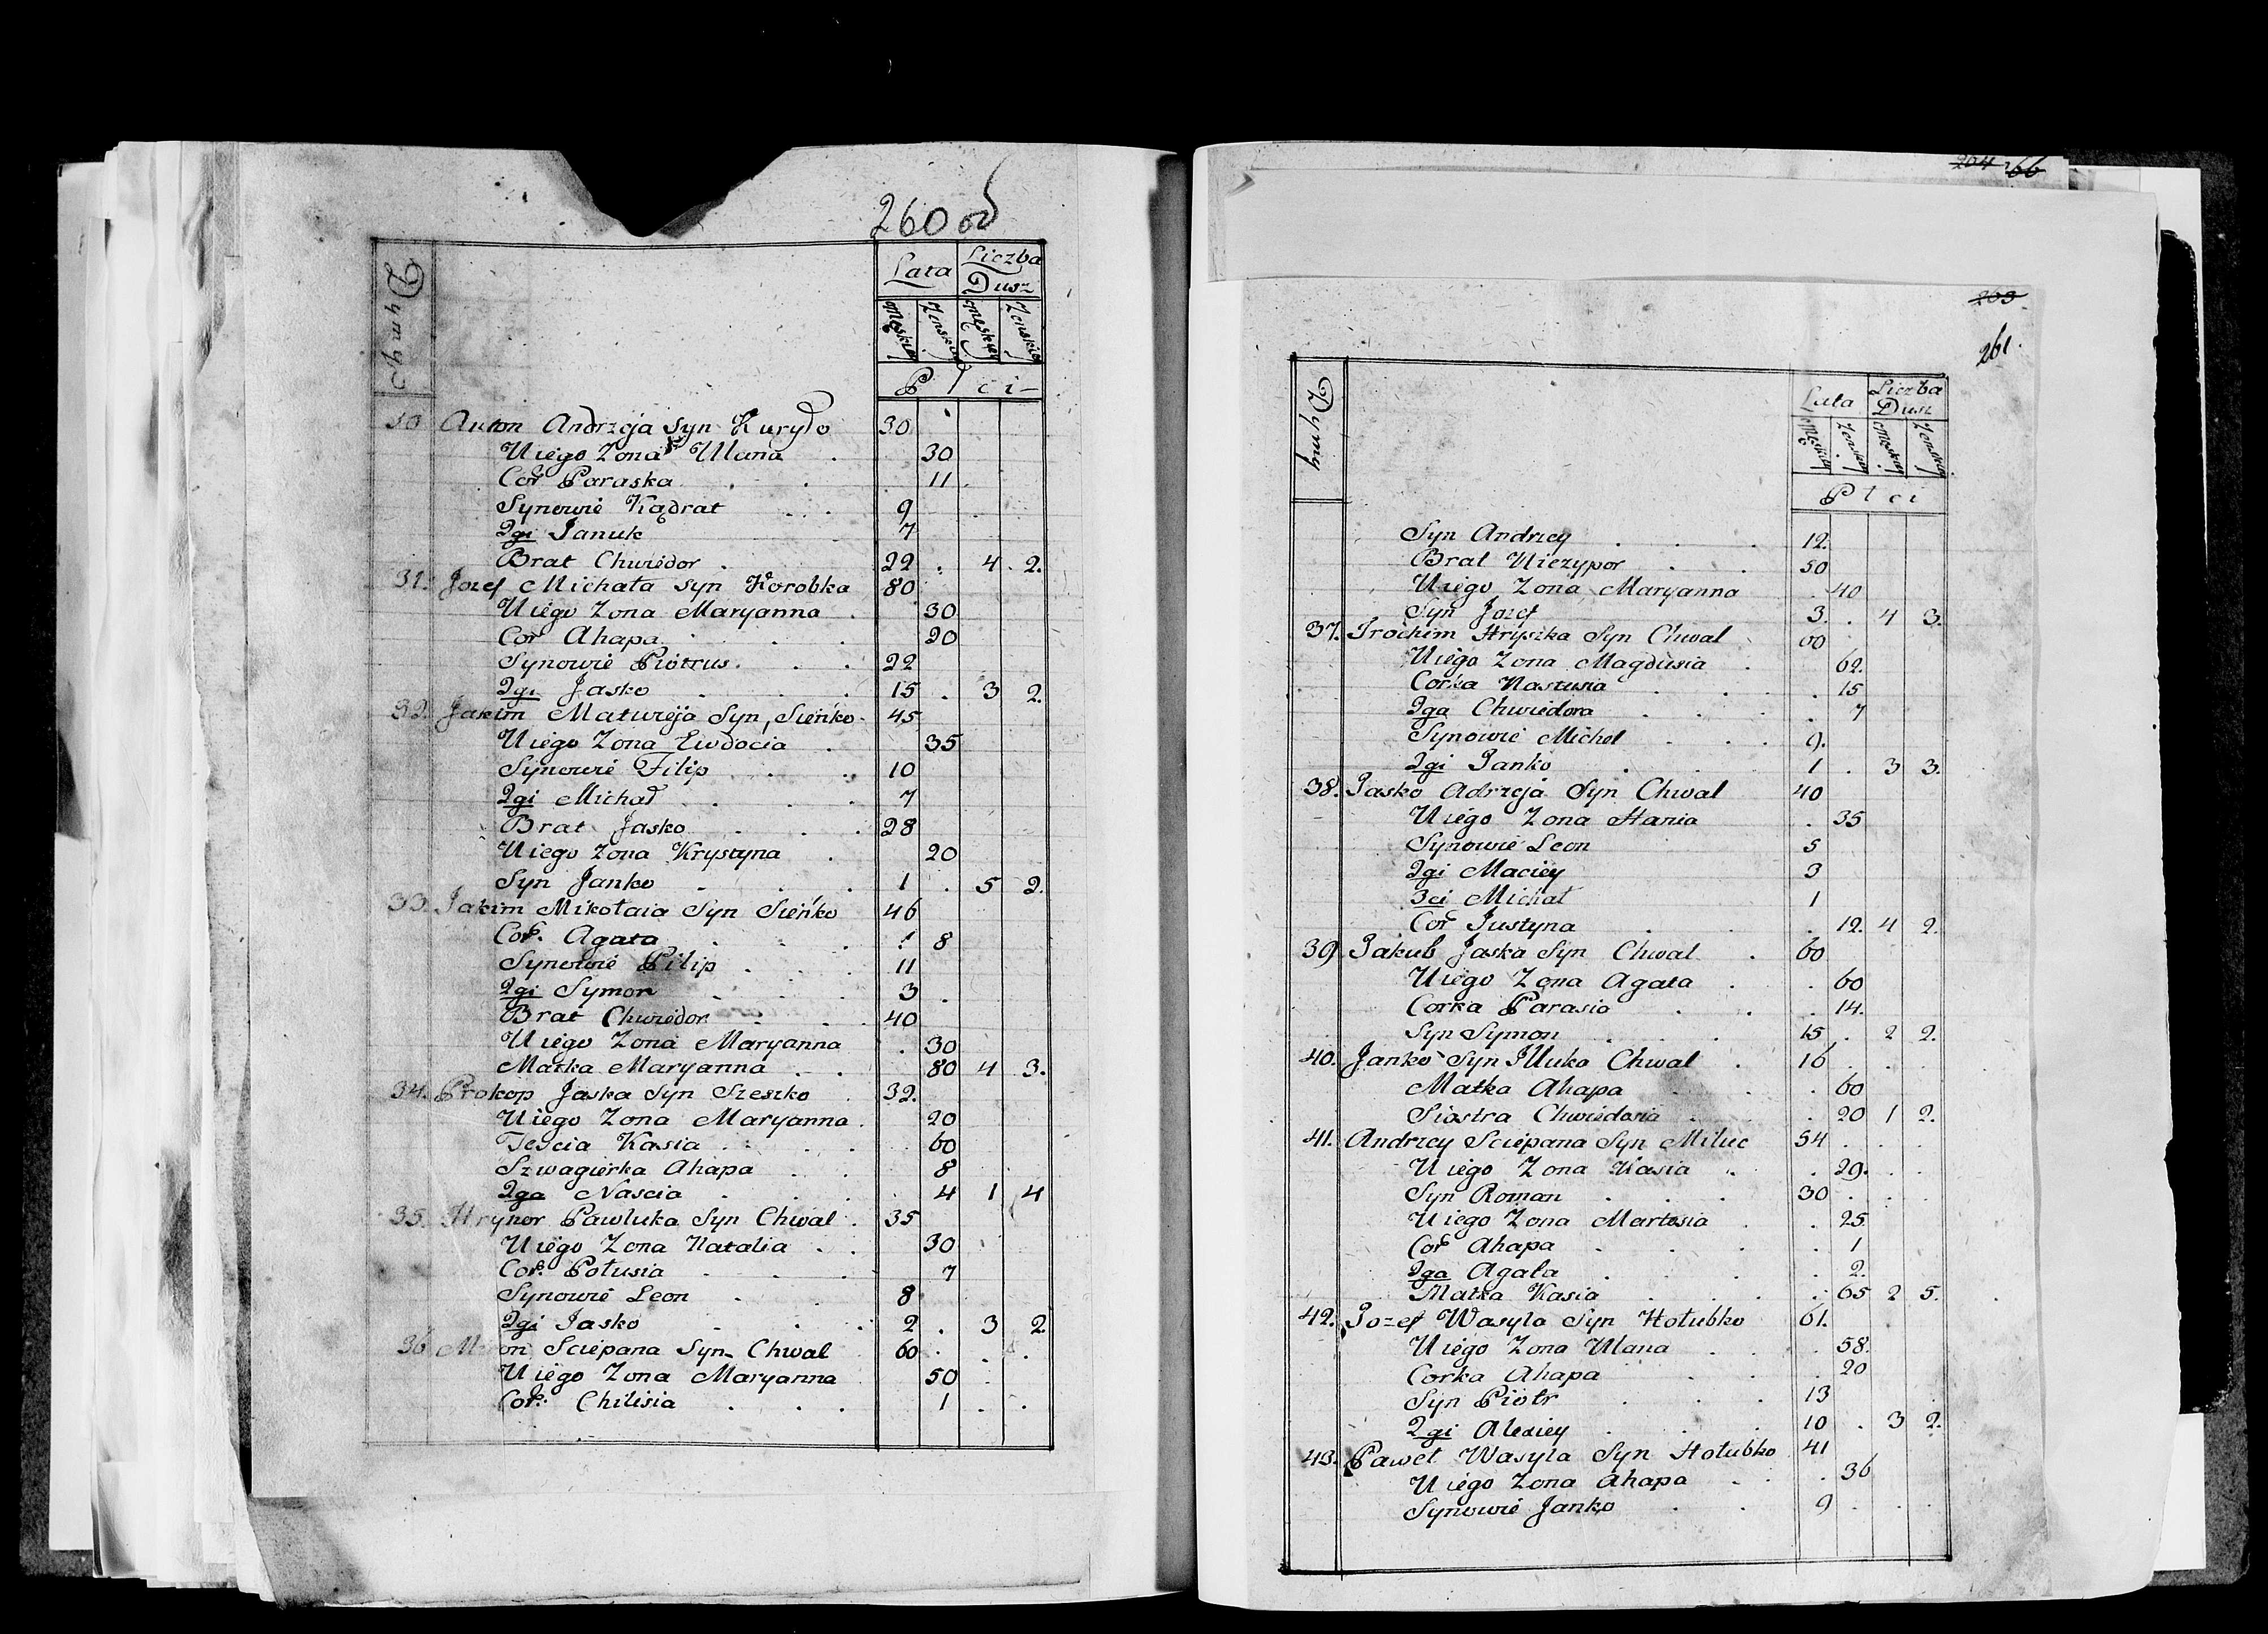 260 об
Dymy
Lata Liczba Dusz
Męskiey Zenskiey Męskiey Zenskiey
Płci
30 Anton Andrzeja Syn Kuryło 30
U iego Zona Ulana 30
Cor Paraska 11
Synowie Kądrat 9
2gi Januk 7
Brat Chwiedor 22 4 2.
31. Jozef Michała Syn Korobka 80
U iego Zona Maryanna 30
Cor Ahapa 20
Synowie Piotrus 22
2gi Jasko 15 3 2.
32. Jakim Matwieja Syn Sieńko 45
U iego Zona Ewdocia 35
Synowie Filip 10
2gi Michał 7
Brat Jasko 28
U iego Zona Krystyna 20
Syn Janko 1 5 2.
33. Jakim Mikołaia Syn Sieńko 46
Cor. Agata 8
Synowie Pilip 11
2gi Symon 3
Brat Chwiedor 40
U iego Zona Maryanna 30
Matka Maryanna 80 4 3.
34. Prokop Jaska Syn Szeszko 32.
U iego Zona Maryanna 20
Teścia Kasia 60
Szwagierka Ahapa 8
2ga Nascia 4 1 4
35. Hryhor Pawluka Syn Chwal 35
U iego Zona Natalia 30
Cor. Połusia 7
Synowie Leon 8
2gi Jasko 2 3 2
36 Sciepana Syn Chwal 60
U iego Zona Maryanna 50
Cor. Chilisia 1
204 66
203
261.
Dymy
Lata Liczba Dusz
Męskiey Zenskiey Męskiey Zenskiey
Płci
Syn Andrzey 12.
Brat Niczypor 50
U iego Zona Maryanna 40
Syn Jozef 3. 4 3.
37. Jrochim Hryszka Syn Chwal 60
U iego Zona Magdusia 62.
Corka Nastusia 15
2ga Chwiedora 7
Synowie Michał 9.
2gi Janko 1 3 3.
38. Jasko Adrzeja Syn Chwal 40
U iego Zona Hania 35
Synowie Leon 5
2gi Maciey 3
3ci Michał 1
Cor Justyna 12. 4 2.
39 Jakub Jaska Syn Chwal 60
U iego Zona Agata 60
Corka Parasia 14.
Syn Symon 15 2 2.
40. Janko Syn Chwal 16
Matka Ahapa 60
Siastra Chwiedosia 20 1 2.
41. Andrzey Sciepana Syn Miluc 54
U iego Zona Kasia 29.
Syn Roman 30
U iego Zona Martosia 25
Cor Ahapa 1
2ga Agata 2.
Matka Kasia 65 2 5.
42. Jozef Wasyla Syn Hołubko 61.
U iego Zona Ulana 58.
Corka Ahapa 20
Syn Piotr 13
2gi Alexiey 10 3 2.
43. Paweł Wasyla Syn Hołubko 41
U iego Zona Ahapa 36
Synowie Janko 9